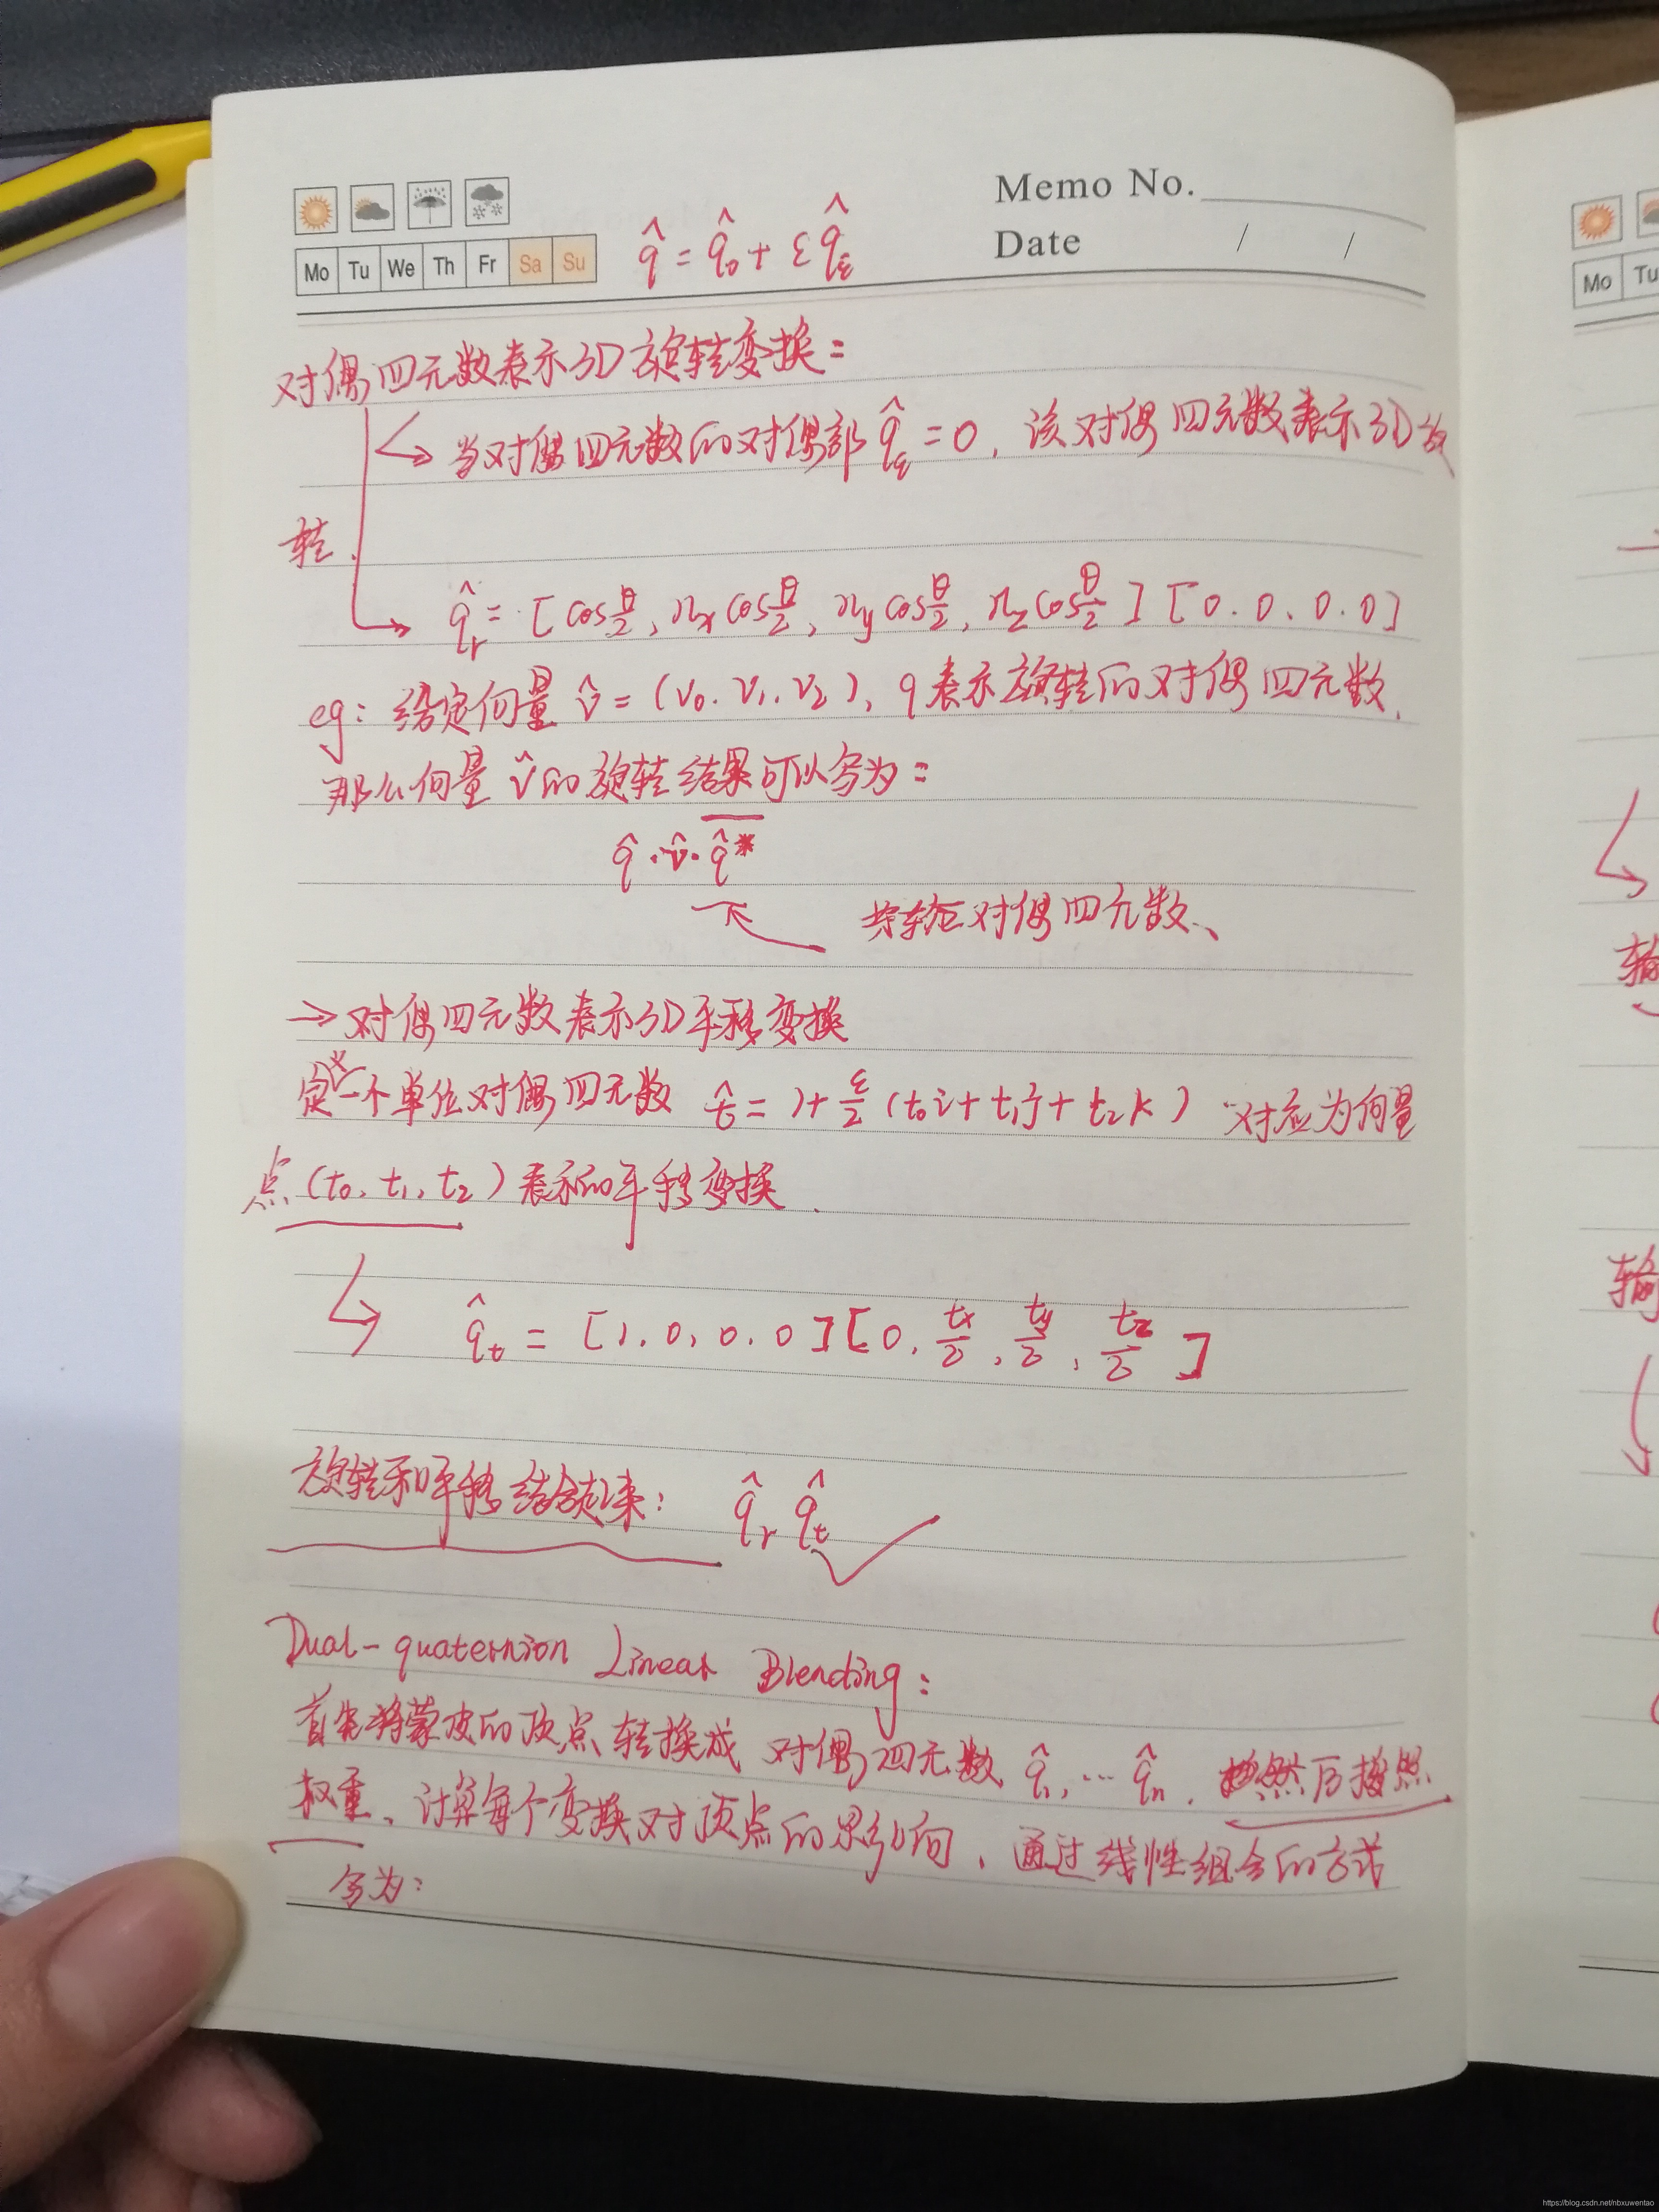 Memo No.
Date / /
Mo Tu We Th Fr Sa Su
q̂ = q̂₀ + ε q̂_ε
对偶四元数表示3D旋转变换:
当对偶四元数的对偶部 q̂_ε = 0, 该对偶四元数表示3D旋
转.
q̂_r = [cos θ/2, n_x cos θ/2, n_y cos θ/2, n_z cos θ/2] [0. 0. 0. 0]
eg: 给定向量 v̂ = (v₀. v₁. v₂), q表示旋转的对偶四元数.
那么向量 v̂ 的旋转结果可以写为:
q̂ · v̂ · \overline{q̂*}
共轭对偶四元数、
→ 对偶四元数表示3D平移变换
定义一个单位对偶四元数 t̂ = 1 + ε/2 (t₀i + t₁j + t₂k) 对应为向量
点 (t₀, t₁, t₂) 表示的平移变换.
q̂_t = [1. 0, 0. 0] [0, t_x/2, t_y/2, t_z/2]
旋转和平移结合起来: q̂_r q̂_t
Dual-quaternion Linear Blending:
首先将蒙皮的顶点转换成 对偶四元数 q̂₁, … q̂_n, 然后按照
权重、计算每个变换对顶点的影响, 通过线性组合的方式
写为:
Mo Tu
输
输
https://blog.csdn.net/nbxuwentao